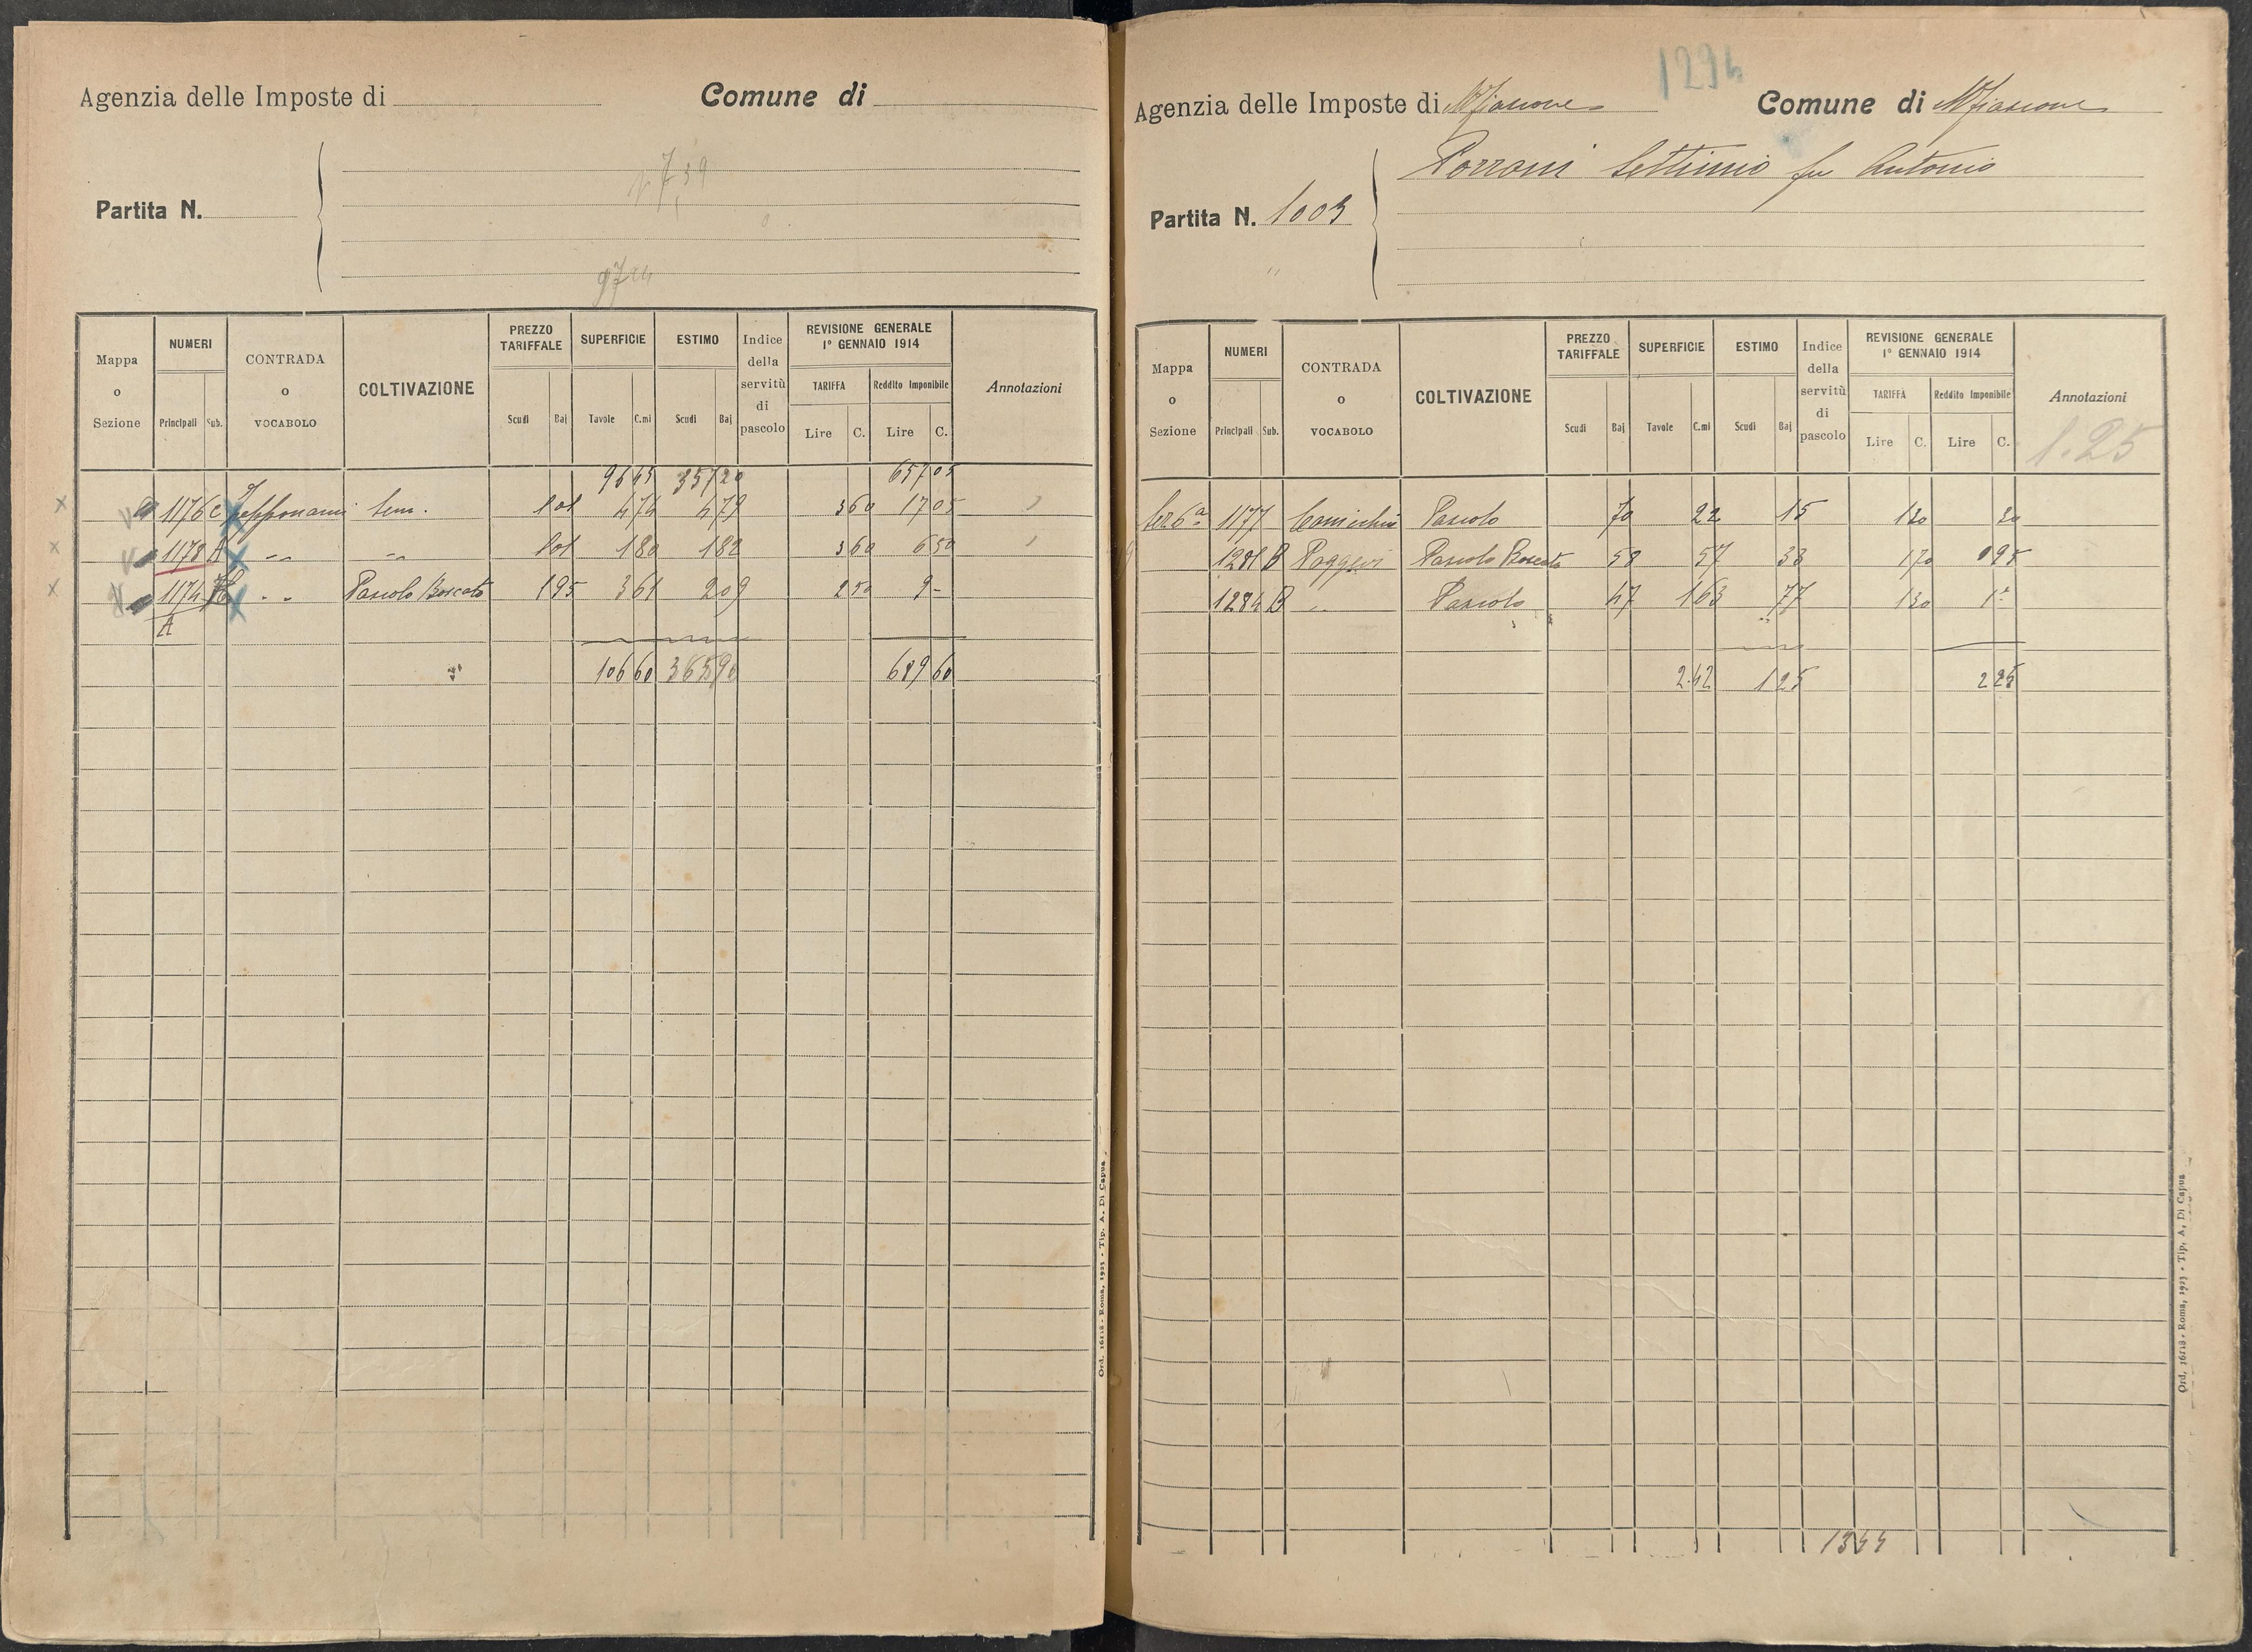 Agenzia delle Imposte di
Comune di
Partita N.
Mappa o Sezione
NUMERI
Principali
Sub.
CONTRADA o VOCABOLO
COLTIVAZIONE
PREZZO TARIFFALE
Scudi
Baj
SUPERFICIE
Tavole
C.mi
ESTIMO
Scudi
Baj
Indice della servitù di pascolo
REVISIONE GENERALE
1° GENNAIO 1914
TARIFFA
Lire
C.
Reddito Imponibile
Lire
C.
Annotazioni
96 45 357 20 657 05
1176 C Sem. 101 474 479 3 60 17 05
1178 A 101 180 182 3 60 6 50
1174 Pascolo Boscato 195 361 209 2 50 9 -
A
106 60 365 90 689 60
Ord. 16118 - Roma, 1923 - Tip. A. Di Capua
1294
Agenzia delle Imposte di Mfiascone
Comune di Mfiascone
Partita N. 1003
Porroni Settimio fu Antonio
Mappa o Sezione
NUMERI
Principali
Sub.
CONTRADA o VOCABOLO
COLTIVAZIONE
PREZZO TARIFFALE
Scudi
Baj
SUPERFICIE
Tavole
C.mi
ESTIMO
Scudi
Baj
Indice della servitù di pascolo
REVISIONE GENERALE
1° GENNAIO 1914
TARIFFA
Lire
C.
Reddito Imponibile
Lire
C.
Annotazioni
1.25
Sez 6ª 1177 Pascolo 70 22 15 1 30 30
1281 B Poggeri Pascolo Boscato 58 57 33 1 70 0 95
1284 B Pascolo 47 163 77 1 30 1
2 42 1 25 2 25
1344
Ord. 16118 - Roma, 1923 - Tip. A. Di Capua